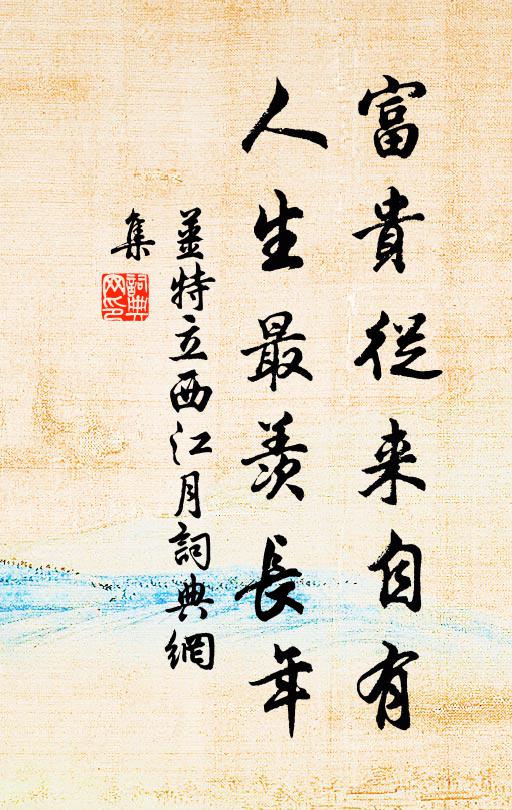 富貴從来自有
人生最羨長年
姜特立西江月詞典網
集
詞典
网印